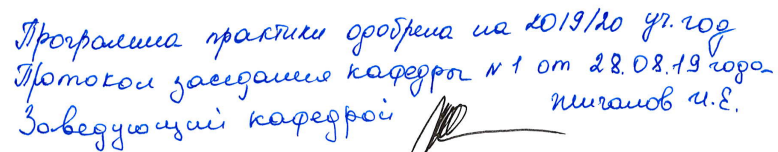 Программа практики одобрена на 2019/20 уч. год
Протокол заседания кафедры N 1 от 28.08.19 года
Заведующий кафедрой Жигалов И.Е.